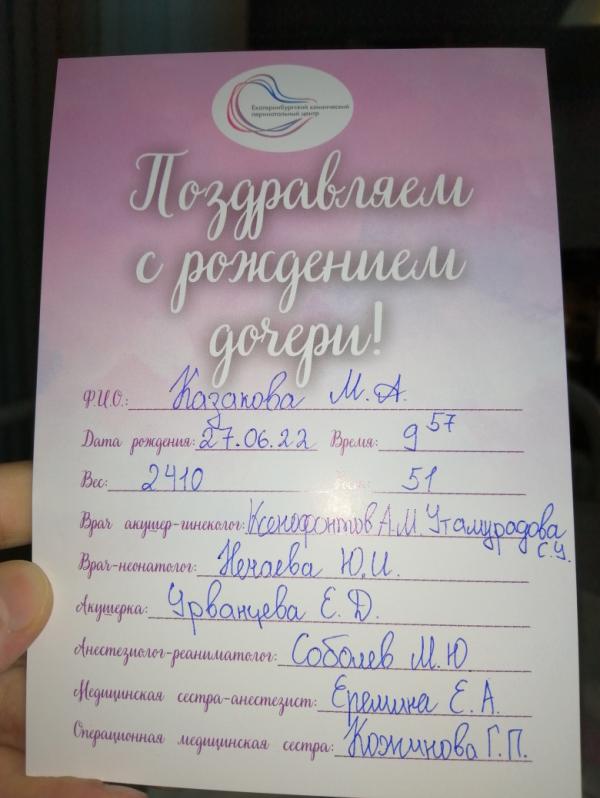 Екатеринбургский клинический
перинатальный центр
Поздравляем
с рождением
дочери!
Ф.И.О.: Казакова М.А.
Дата рождения: 27.06.22 Время: 9 57
Вес: 2410 51
Врач акушер-гинеколог: Ксенофонтов А.М. Утамурадова
С.У.
Врач-неонатолог: Нечаева Ю.И.
Акушерка: Урванцева Е.Д.
Анестезиолог-реаниматолог: Соболев М.Ю
Медицинская сестра-анестезист: Еремина Е.А.
Операционная медицинская сестра: Кожинова Г.П.